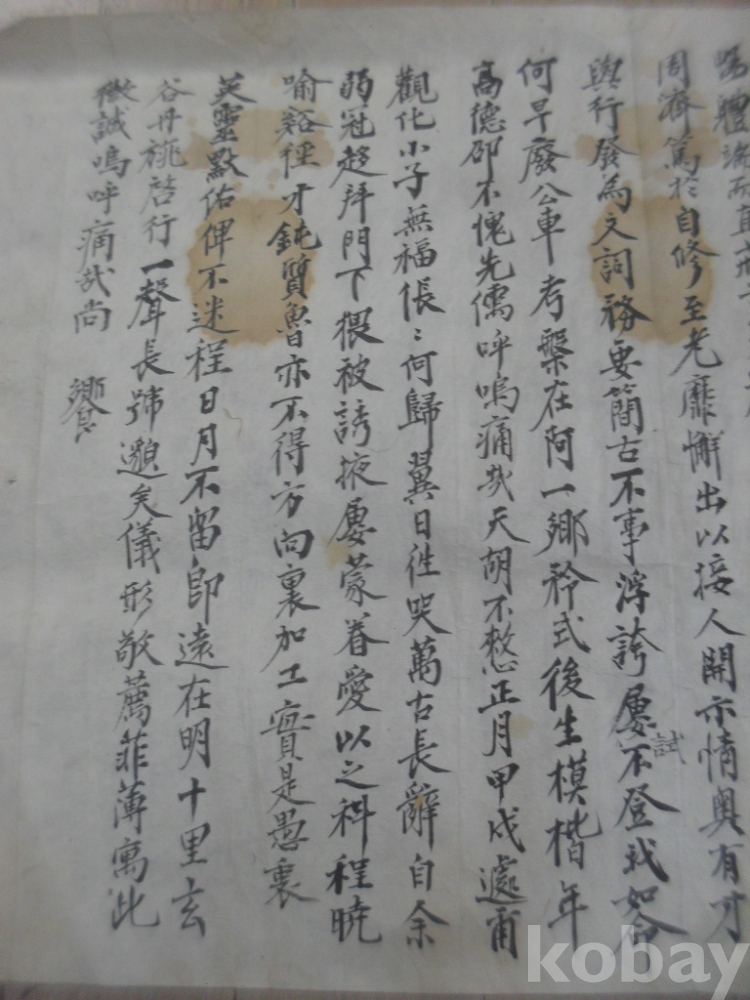 周濟篤於自修至老靡懈出以接人開示情奧有時
與行發爲文詞務要簡古不事浮誇屢試不登我如命
何早廢公車考槃在阿一鄉矜式後生模楷年
高德卲不愧先儒呼嗚痛哉天胡不憖正月甲戌遽爾
觀化小子無福倀〻何歸翼日徃哭萬古長辭自余
弱冠趍拜門下猥被誘掖屢蒙眷愛以之科程暁
喻谿徑才鈍質魯亦不得方向裏加工實是愚衷
英靈黙佑俾不迷程日月不留即遠在明十里玄
谷丹旐啓行一聲長號邈矣儀形敬薦菲薄寓此
微誠嗚呼痛哉尚 饗
kobay